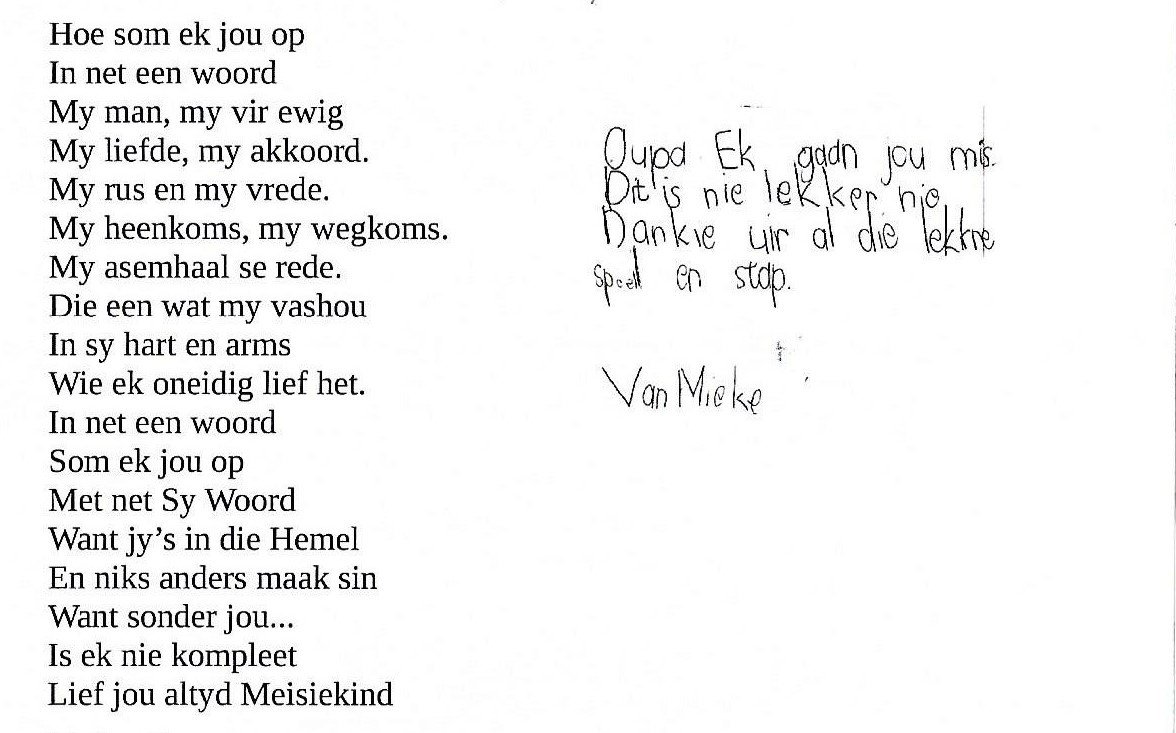 Hoe som ek jou op
In net een woord
My man, my vir ewig
My liefde, my akkoord.
My rus en my vrede.
My heenkoms, my wegkoms.
My asemhaal se rede.
Die een wat my vashou
In sy hart en arms
Wie ek oneidig lief het.
In net een woord
Som ek jou op
Met net Sy Woord
Want jy’s in die Hemel
En niks anders maak sin
Want sonder jou...
Is ek nie kompleet
Lief jou altyd Meisiekind
Oupa Ek gaan jou mis.
Dit is nie lekker nie.
Dankie vir al die lekkre
speel en stap.
Van Mieke